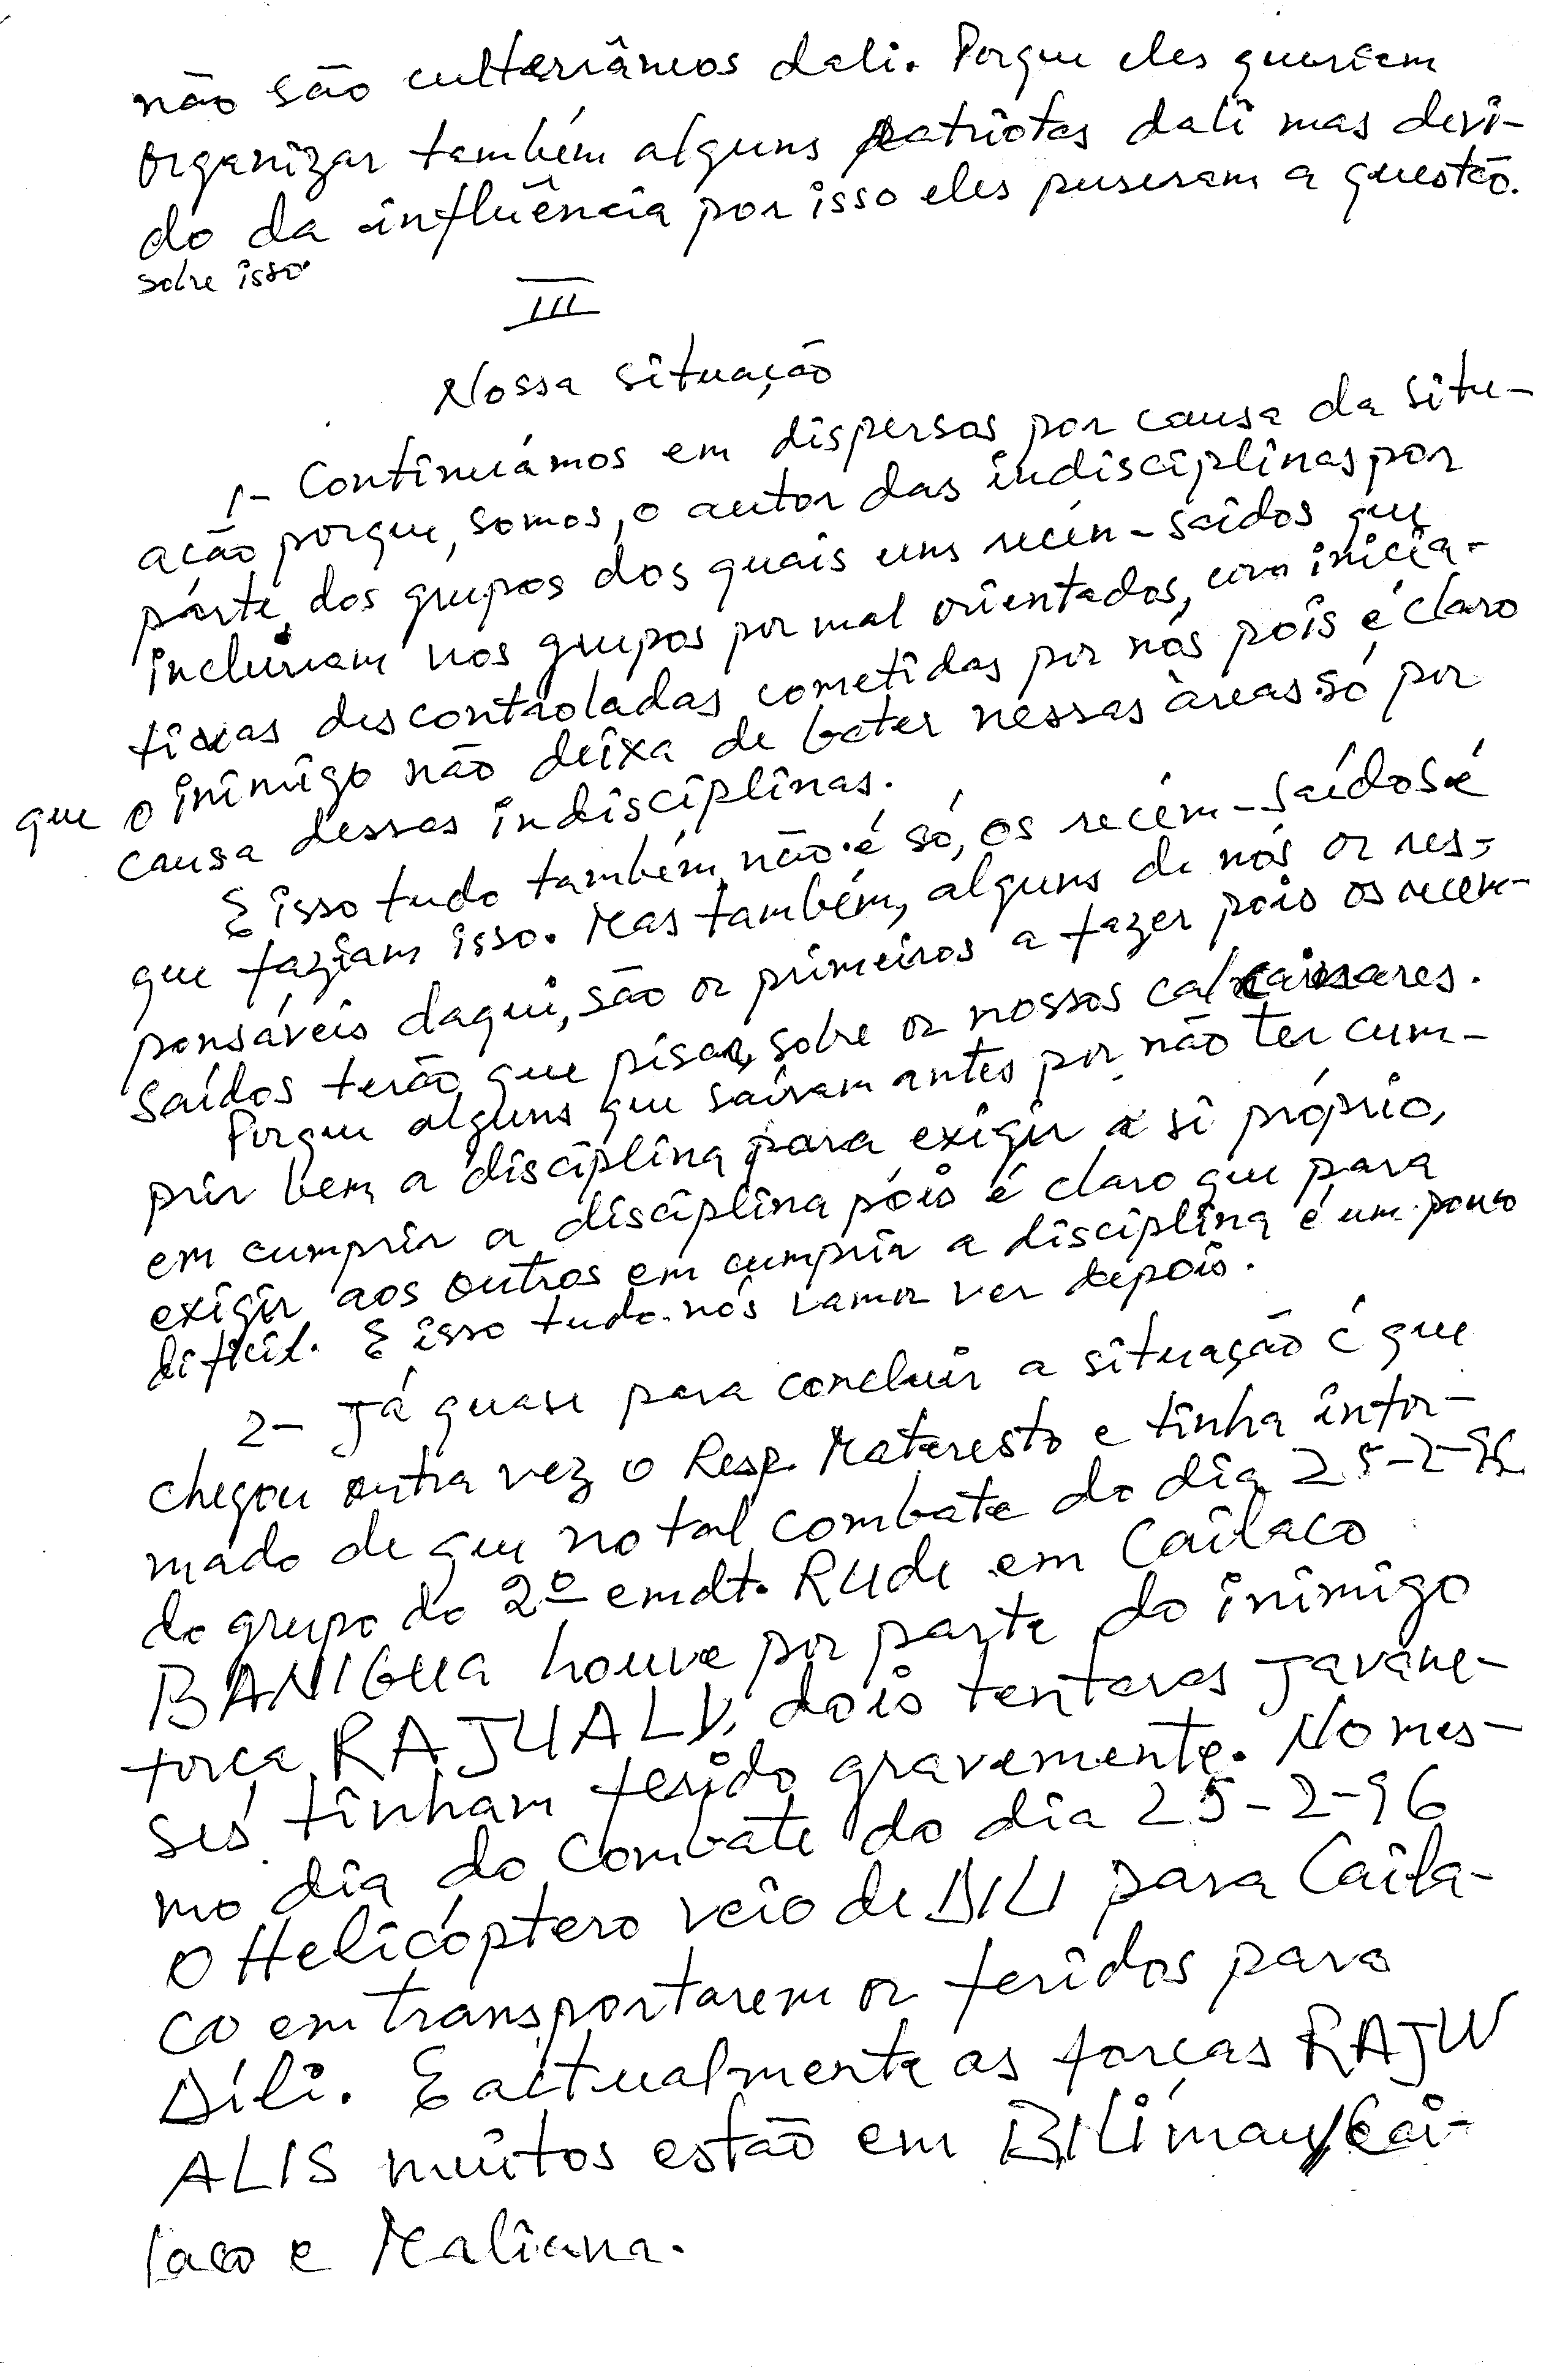 não são culterrâneos dali. Porque eles queriam
organizar também alguns patriotas dali mas devi-
do da influência por isso eles puseram a questão.
sobre isso.
III
Nossa situação
1- Continuámos em dispersos por causa da situ-
ação porque, somos, o autor das indisciplinas por
párte, dos grupos dos quais uns recén-saídos que
incluiram nos grupos por mal orientados, com inicia-
tivas descontroladas cometidas por nós pois é claro
que o inimigo não deixa de bater nessas àreas só por
causa dessas indisciplinas.
E isso tudo também não é só, os recém-saídos é
que faziam isso. Mas também, alguns de nós os res-
ponsáveis daqui, são os primeiros a fazer pois os recem-
saídos terão que pisar, sobre os nossos calcanares.
Porque alguns que saíram antes por não ter cum-
prir bem a disciplina para exigir a si próprio,
em cumprir a disciplina póis é claro que para
exigir aos outros em cumprir a disciplina é um pouco
difícil. E isso tudo nós vamos ver depois.
2- Já quase para concluir a situação é que
chegou outra vez o Resp. Materesto e tinha infor-
mado de que no tal combate do dia 25-2-96
do grupo do 2º cmdt. Rudi em Cailaco
BANIGUA houve por parte do inimigo
força RAJUALI, dois tenteras Javane-
ses tinham ferido gravemente. No mes-
mo dia do combate do dia 25-2-96
O Helicóptero veio de DILI para Caila-
co em transportarem os feridos para
Dili. E actualmente as forças RAJW
ALIS muitos estão em BILimau/Cai-
laco e Maliana.